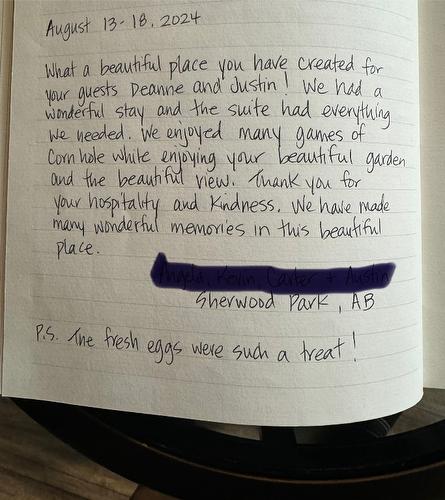 August 13-18, 2024
What a beautiful place you have created for
your guests Deanne and Justin! We had a
wonderful stay and the suite had everything
we needed. We enjoyed many games of
Corn hole while enjoying your beautiful garden
and the beautiful view. Thank you for
your hospitality and kindness. We have made
many wonderful memories in this beautiful
place.
Sherwood Park, AB
P.S. The fresh eggs were such a treat!